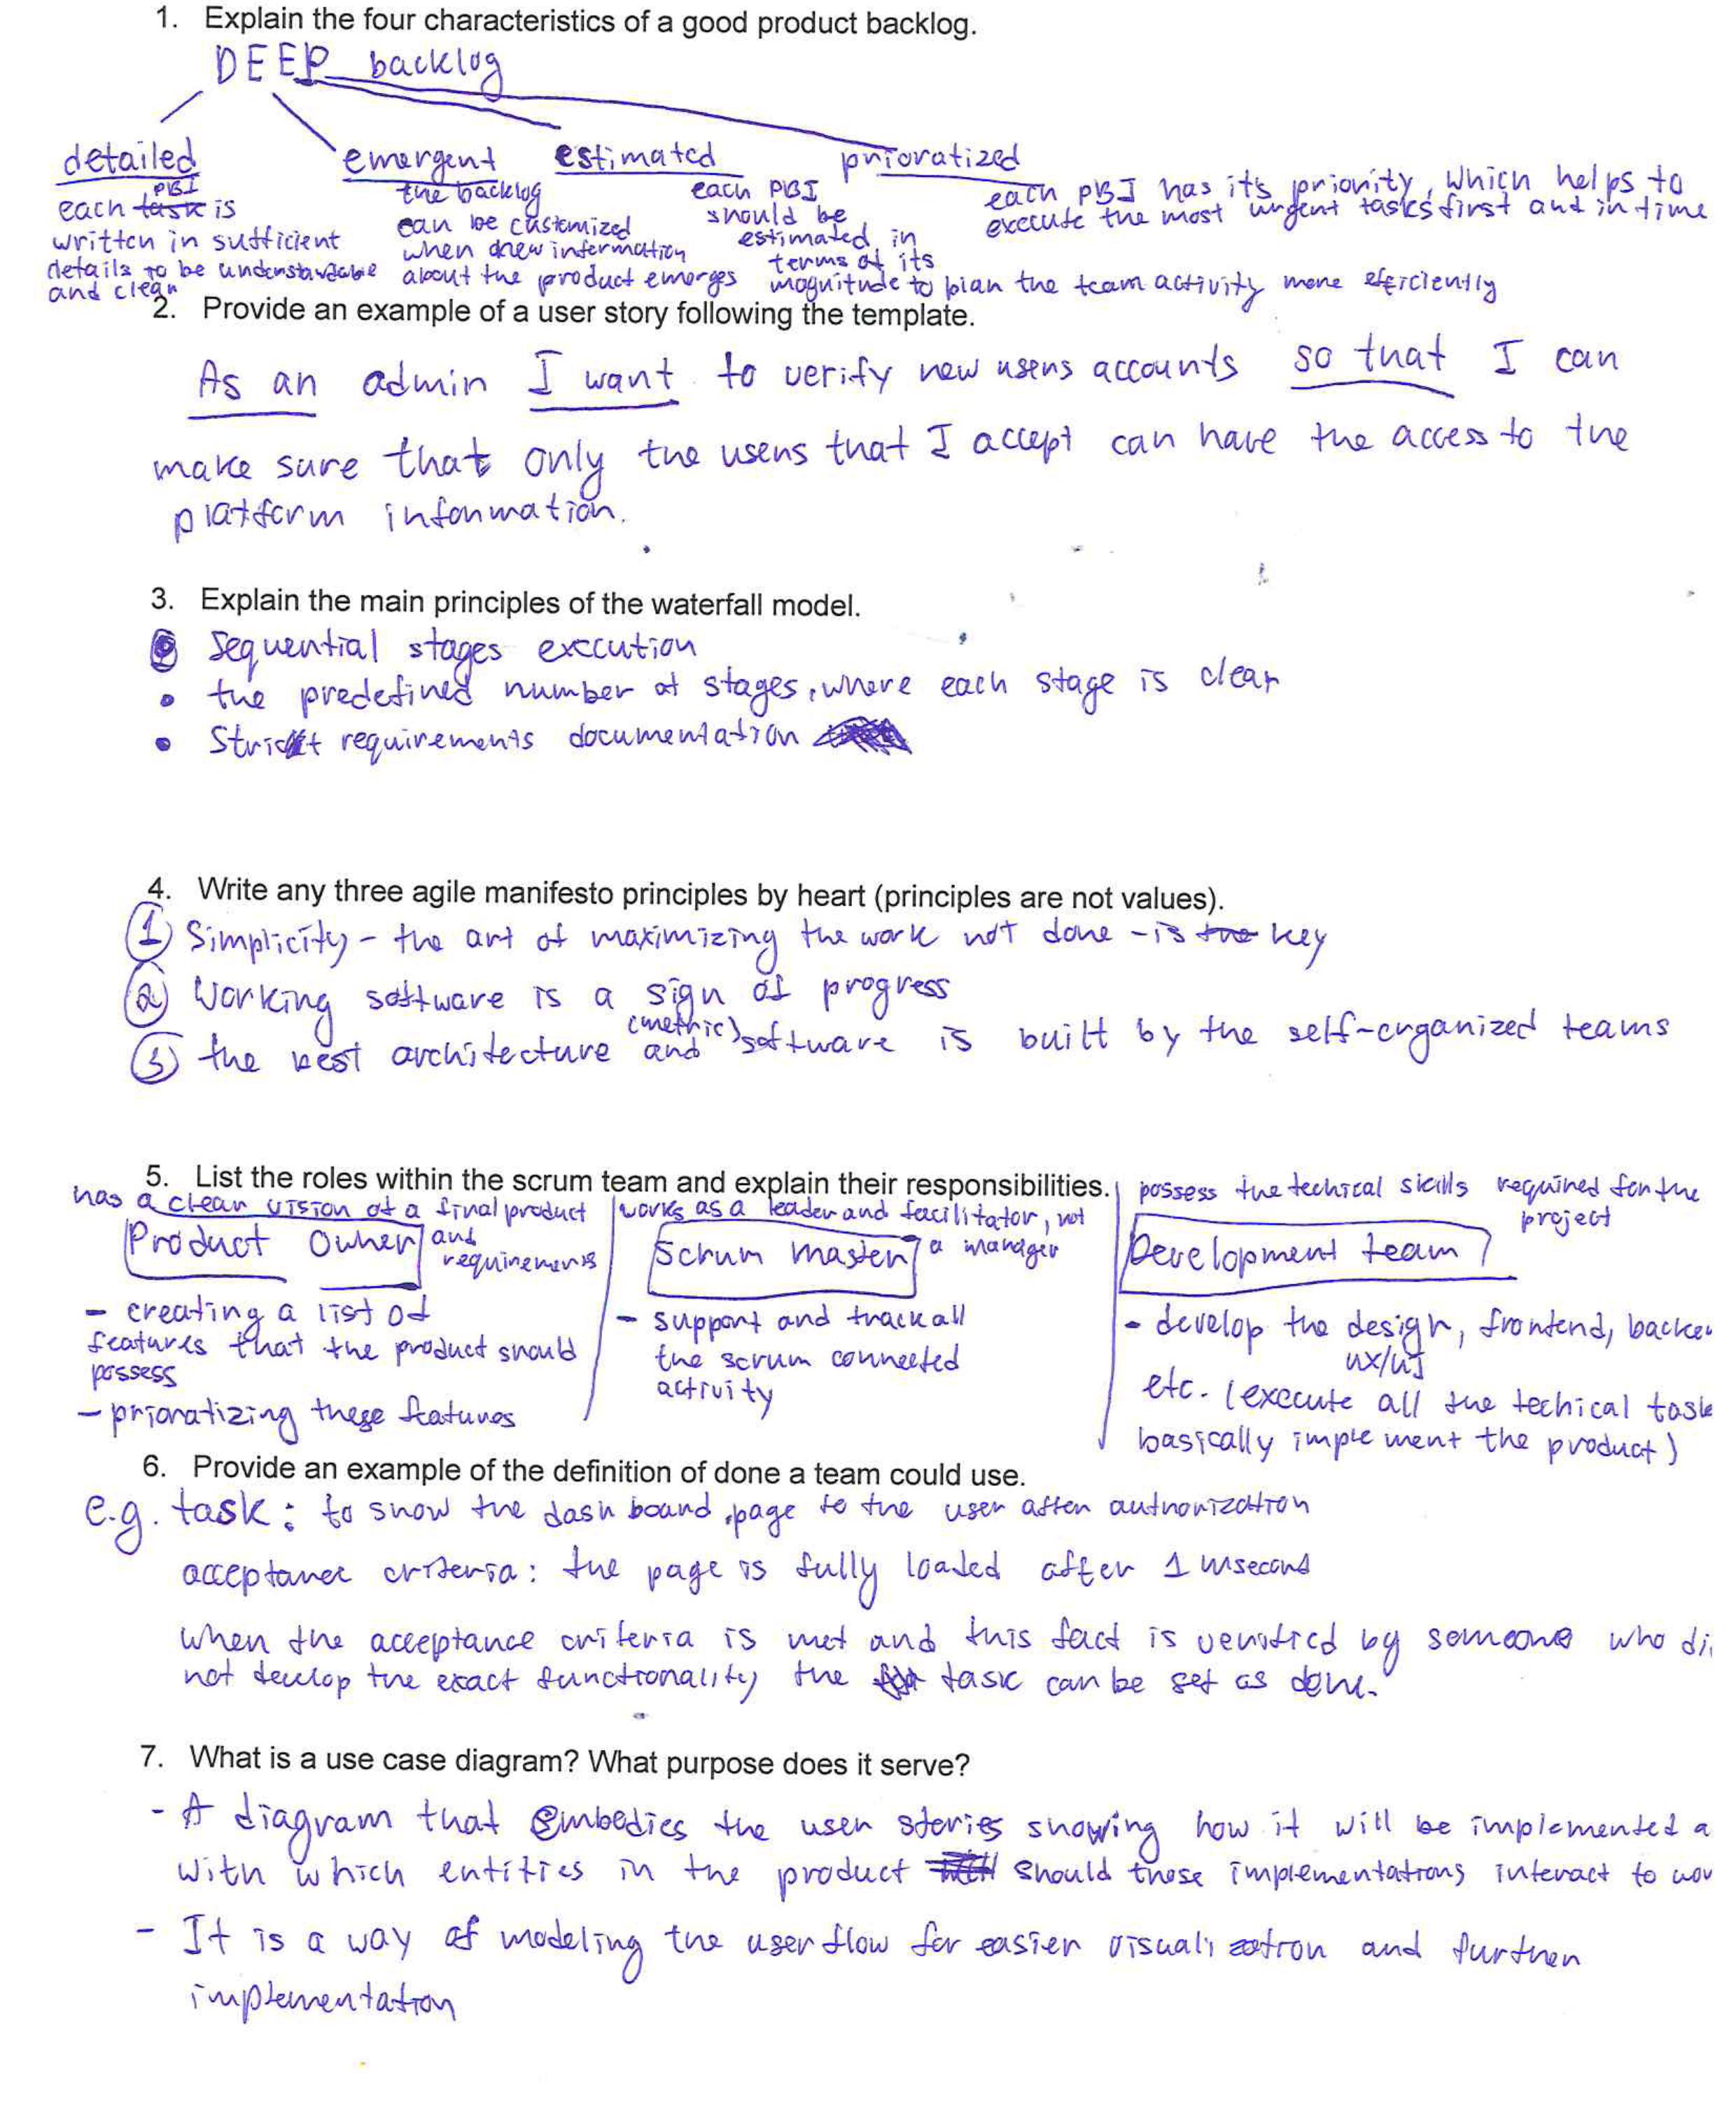 1. Explain the four characteristics of a good product backlog.
DEEP backlog
detailed
each PBI is
written in sufficient
details to be understandable
and clear
emergent
the backlog
can be customized
when new information
about the product emerges
estimated
each PBI
should be
estimated in
terms of its
magnitude to plan the team activity more efficiently
prioratized
each PBI has it's priority, which helps to
execute the most urgent tasks first and in time
2. Provide an example of a user story following the template.
As an admin I want to verify new users accounts so that I can
make sure that only the users that I accept can have the access to the
platform information.
3. Explain the main principles of the waterfall model.
• Sequential stages execution
• the predefined number of stages, where each stage is clear
• Strict requirements documentation
4. Write any three agile manifesto principles by heart (principles are not values).
1 Simplicity - the art of maximizing the work not done - is key
2 Working software is a sign of progress
(metric)
3 the best architecture and software is built by the self-organized teams
5. List the roles within the scrum team and explain their responsibilities.
has a clear vision of a final product
Product Owner and
requirements
- creating a list of
features that the product should
possess
- prioratizing these features
works as a leader and facilitator, not
Scrum master a manager
- support and track all
the scrum connected
activity
possess the techical skills required for the
project
Development team
- develop the design, frontend, backe
ux/UI
etc. (execute all the techical task
basically implement the product)
6. Provide an example of the definition of done a team could use.
e.g. task: to show the dashboard page to the user after authorization
acceptance criteria: the page is fully loaded after 1 msecond
when the acceptance criteria is met and this fact is verified by someone who di
not develop the exact functionality the task can be set as done.
7. What is a use case diagram? What purpose does it serve?
- A diagram that embodies the user stories showing how it will be implemented a
with which entities in the product should those implementations interact to wor
- It is a way of modeling the user flow for easier visualization and further
implementation